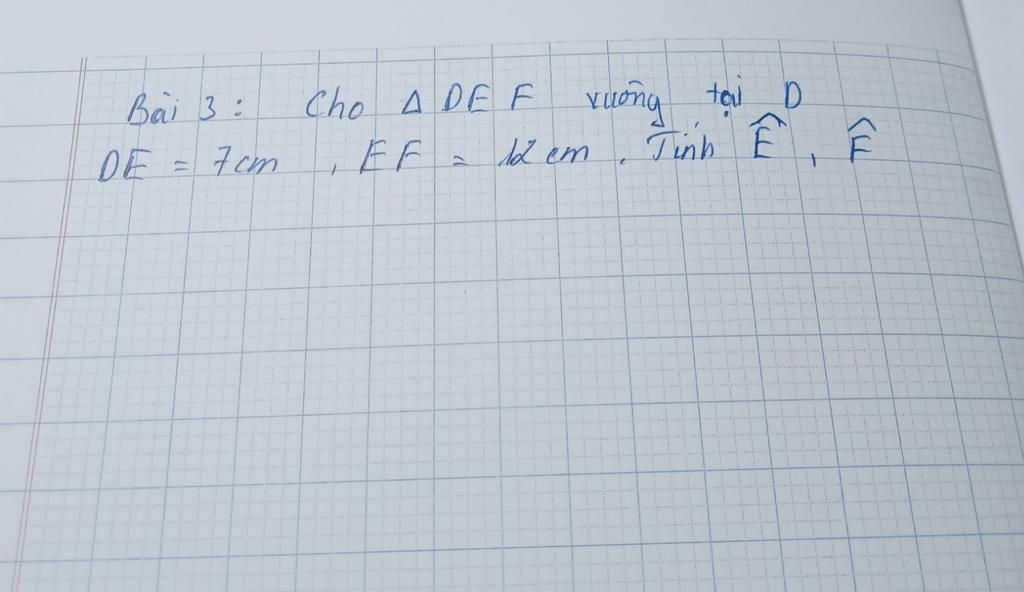 Bài 3: Cho Δ DEF vuông tại D
DE = 7cm, EF = 12 cm. Tính Ê, F̂